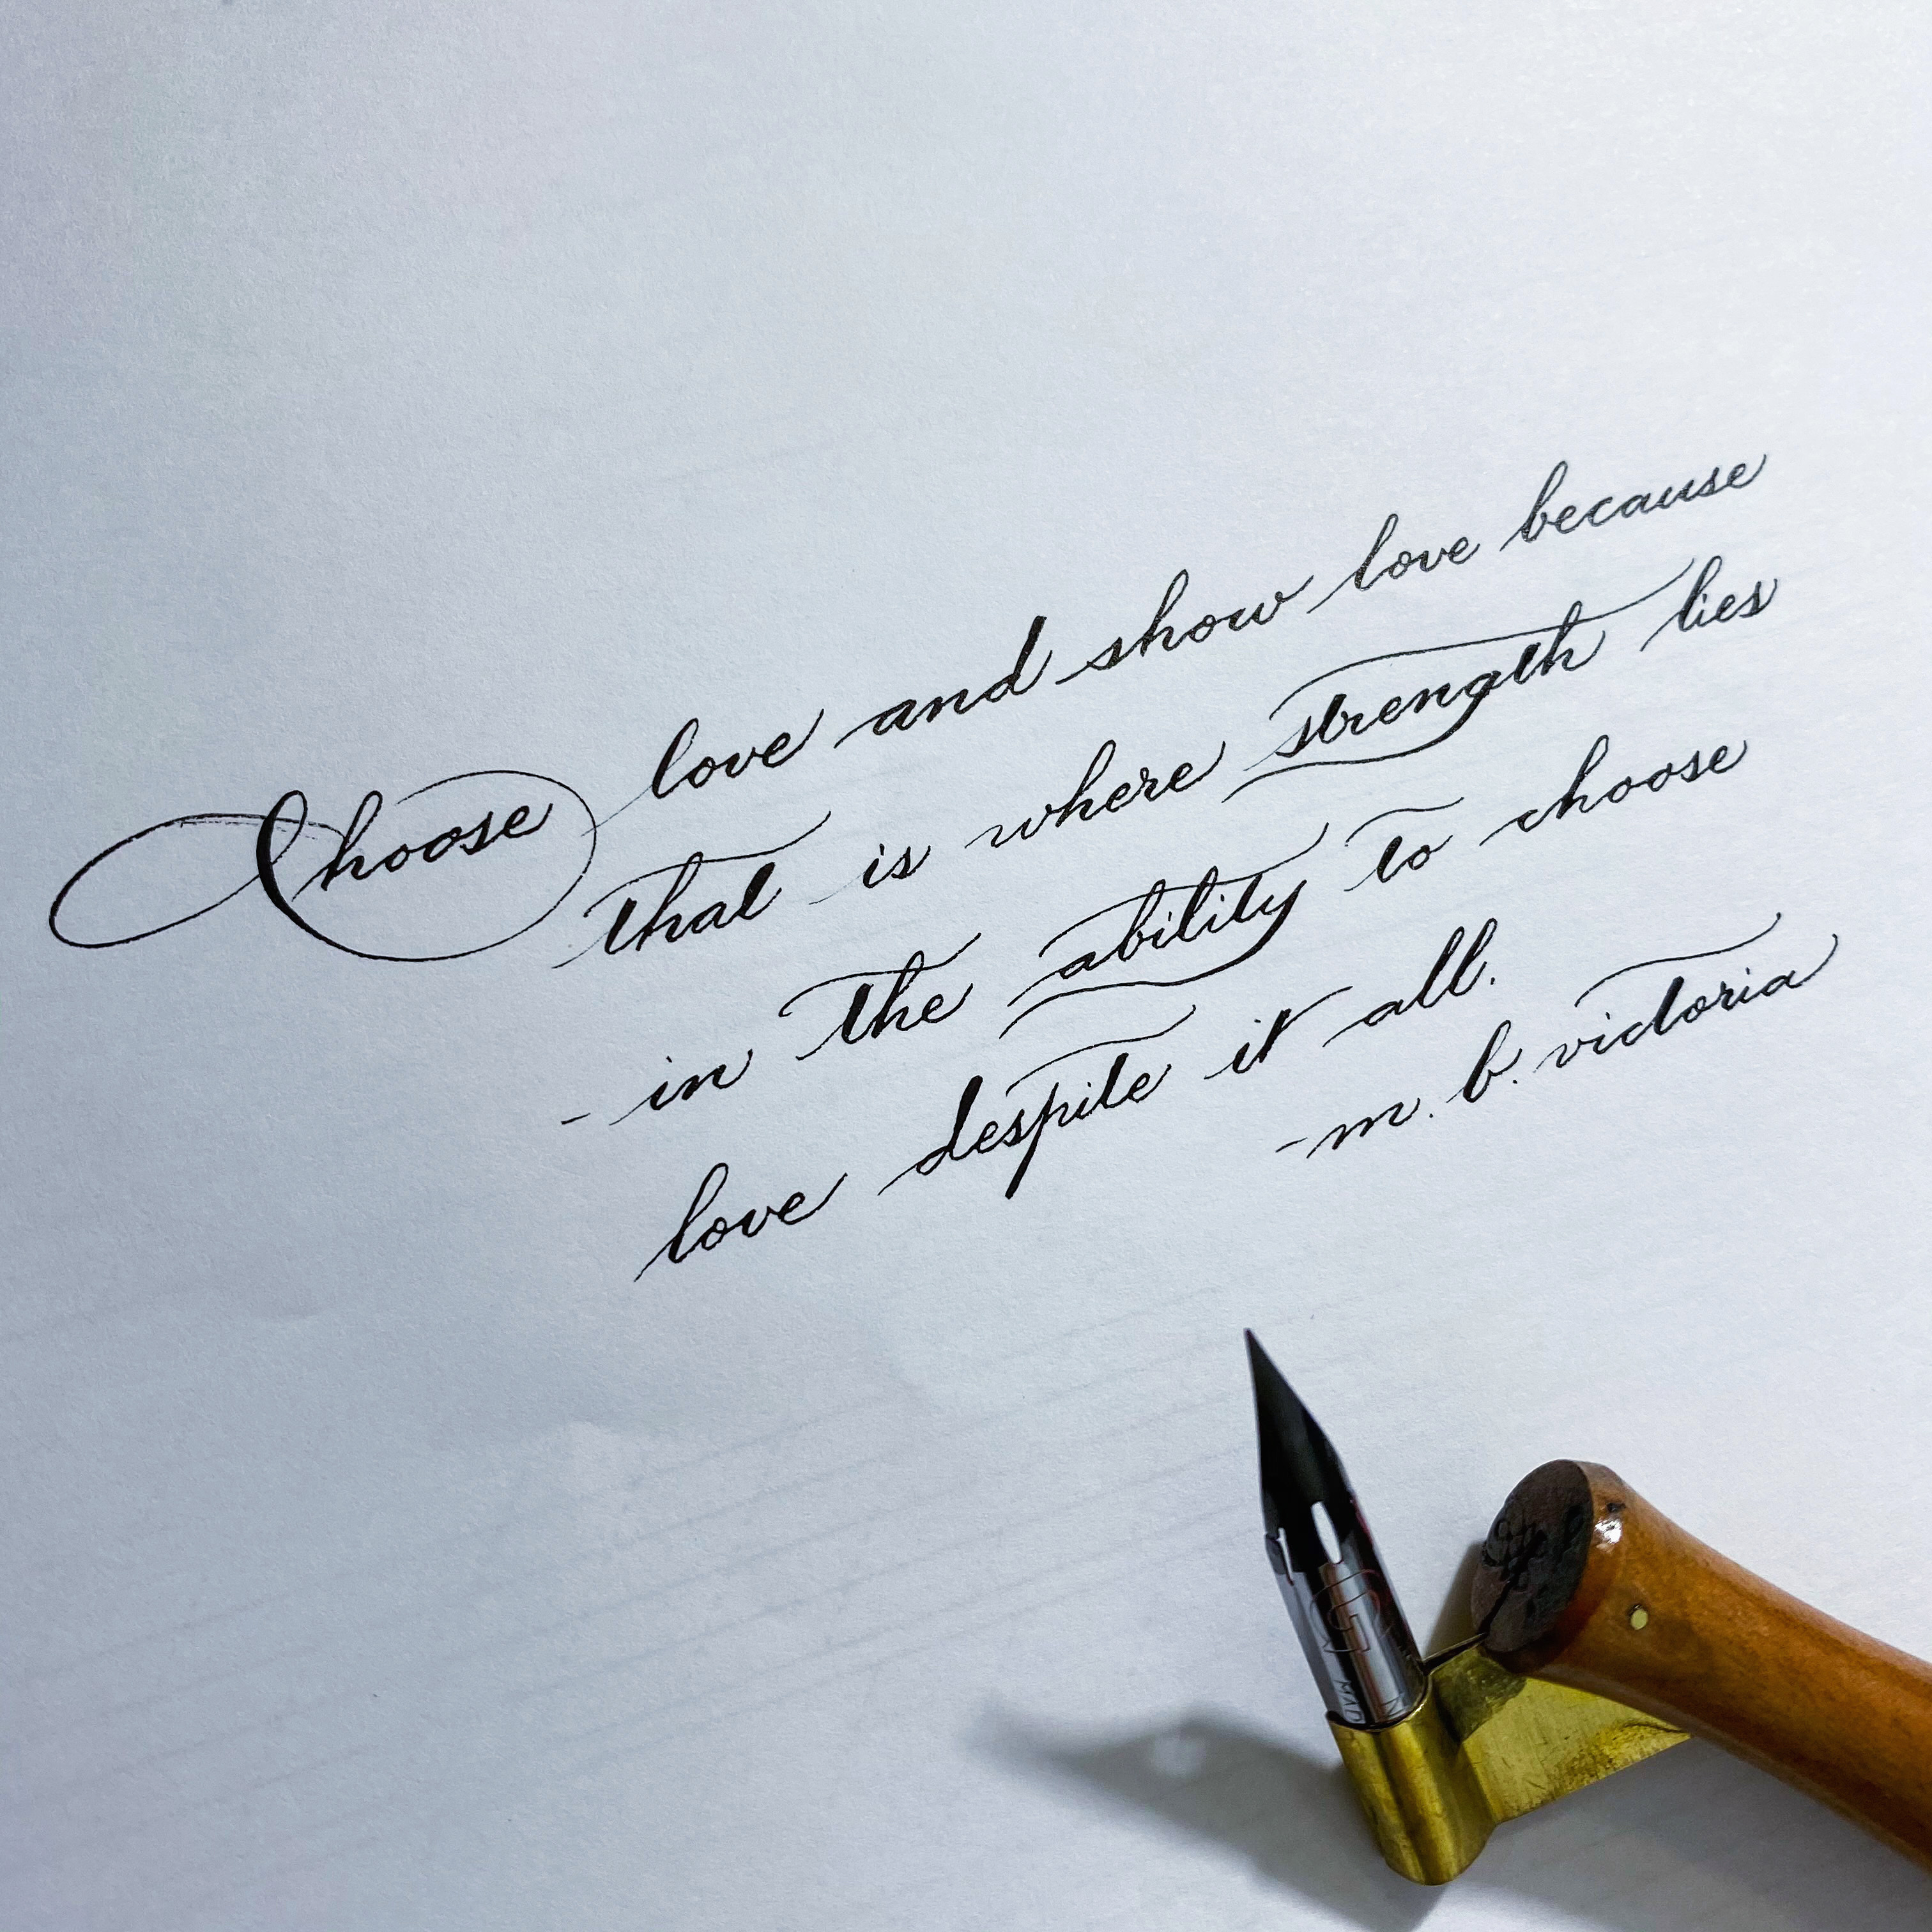 Choose love and show love because
that is where strength lies
- in the ability to choose
love despite it all.
-m. b. victoria
G